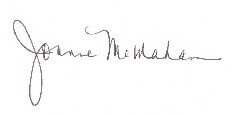 Joanne McMahan